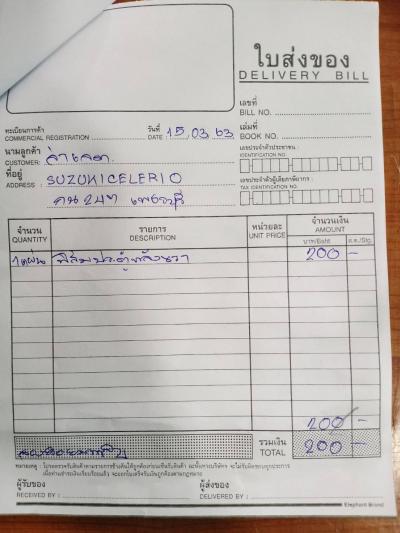 ใบส่งของ
DELIVERY BILL
เลขที่
BILL NO.
ทะเบียนการค้า
COMMERCIAL REGISTRATION
วันที่
DATE : 15,03,63
เล่มที่
BOOK NO.
นามลูกค้า
CUSTOMER:
เลขประจำตัวประชาชน :
IDENTIFICATION NO.
ที่อยู่
ADDRESS : SUZUKI CELERIO
เลขประจำตัวผู้เสียภาษีอากร :
TAX IDENTIFICATION NO.
เพชรบุรี
จำนวน
QUANTITY
รายการ
DESCRIPTION
หน่วยละ
UNIT PRICE
จำนวนเงิน
AMOUNT
บาท/Baht ส.ต./Stg.
1 แผ่น 200 -
200 -
รวมเงิน
TOTAL 200 -
หมายเหตุ : โปรดตรวจรับสินค้าตามรายการข้างต้นให้ถูกต้องก่อนเซ็นรับสินค้า
ผู้รับของ
RECEIVED BY :
ผู้ส่งของ
DELIVERED BY :
Elephant Brand